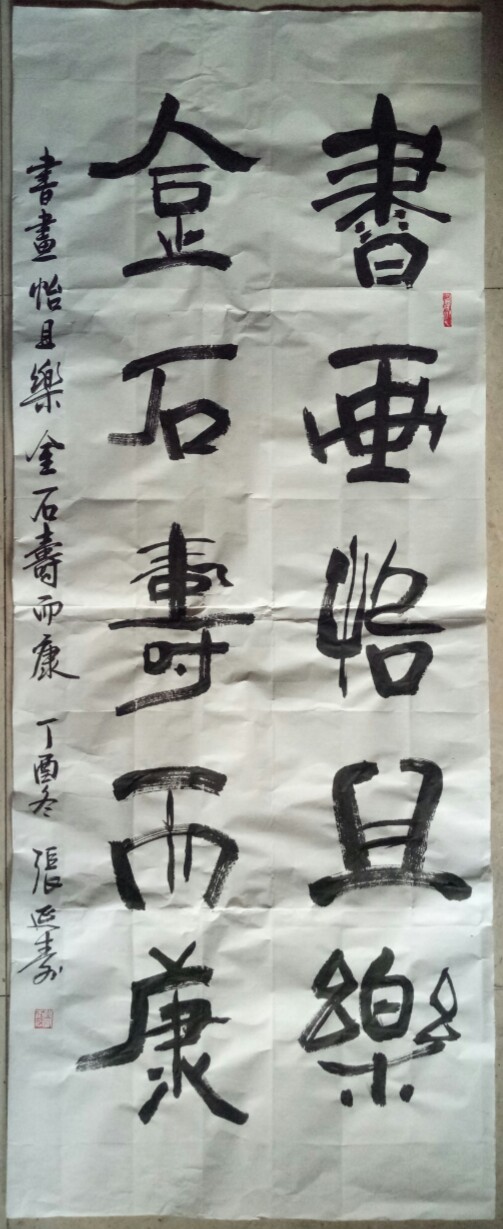 書画怡且樂
金石壽而康
書畫怡且樂 金石壽而康 丁酉冬 張延壽